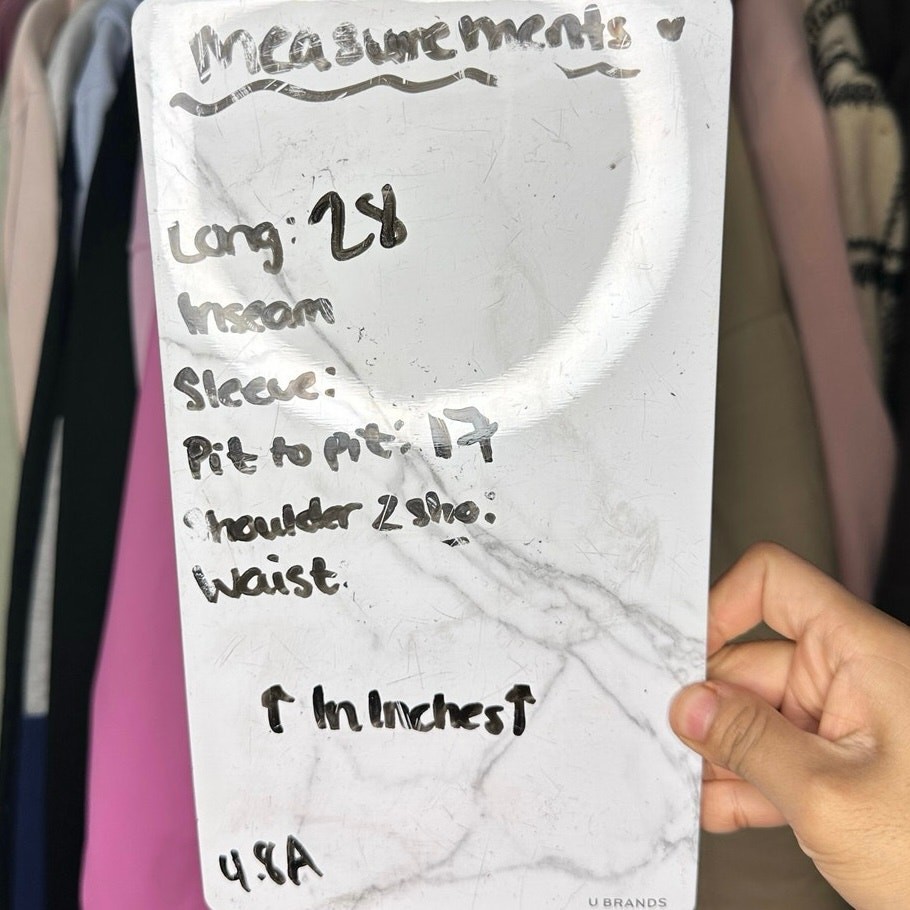 Measurements ♥
Long: 28
Inseam
Sleeve:
Pit to pit: 17
Shoulder 2 sho:
Waist.
↑ In Inches ↑
4.8A
U BRANDS